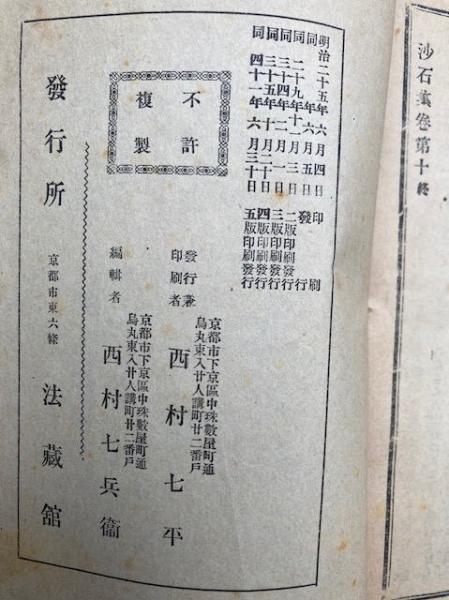 沙石集卷第十終
明治二十五年六月四日印刷
同年六月五日發行
同二十九年十一月三日二版印刷發行
同三十四年二月一日三版印刷發行
同三十五年十月三十日四版印刷發行
同四十一年六月二十日五版印刷發行
不許
複製
京都市下京區中珠數屋町通
烏丸東入廿人講町廿二番戶
發行兼
印刷者
西村七平
京都市下京區中珠數屋町通
烏丸東入廿人講町廿二番戶
編輯者
西村七兵衞
發行所
京都市東六條
法藏館